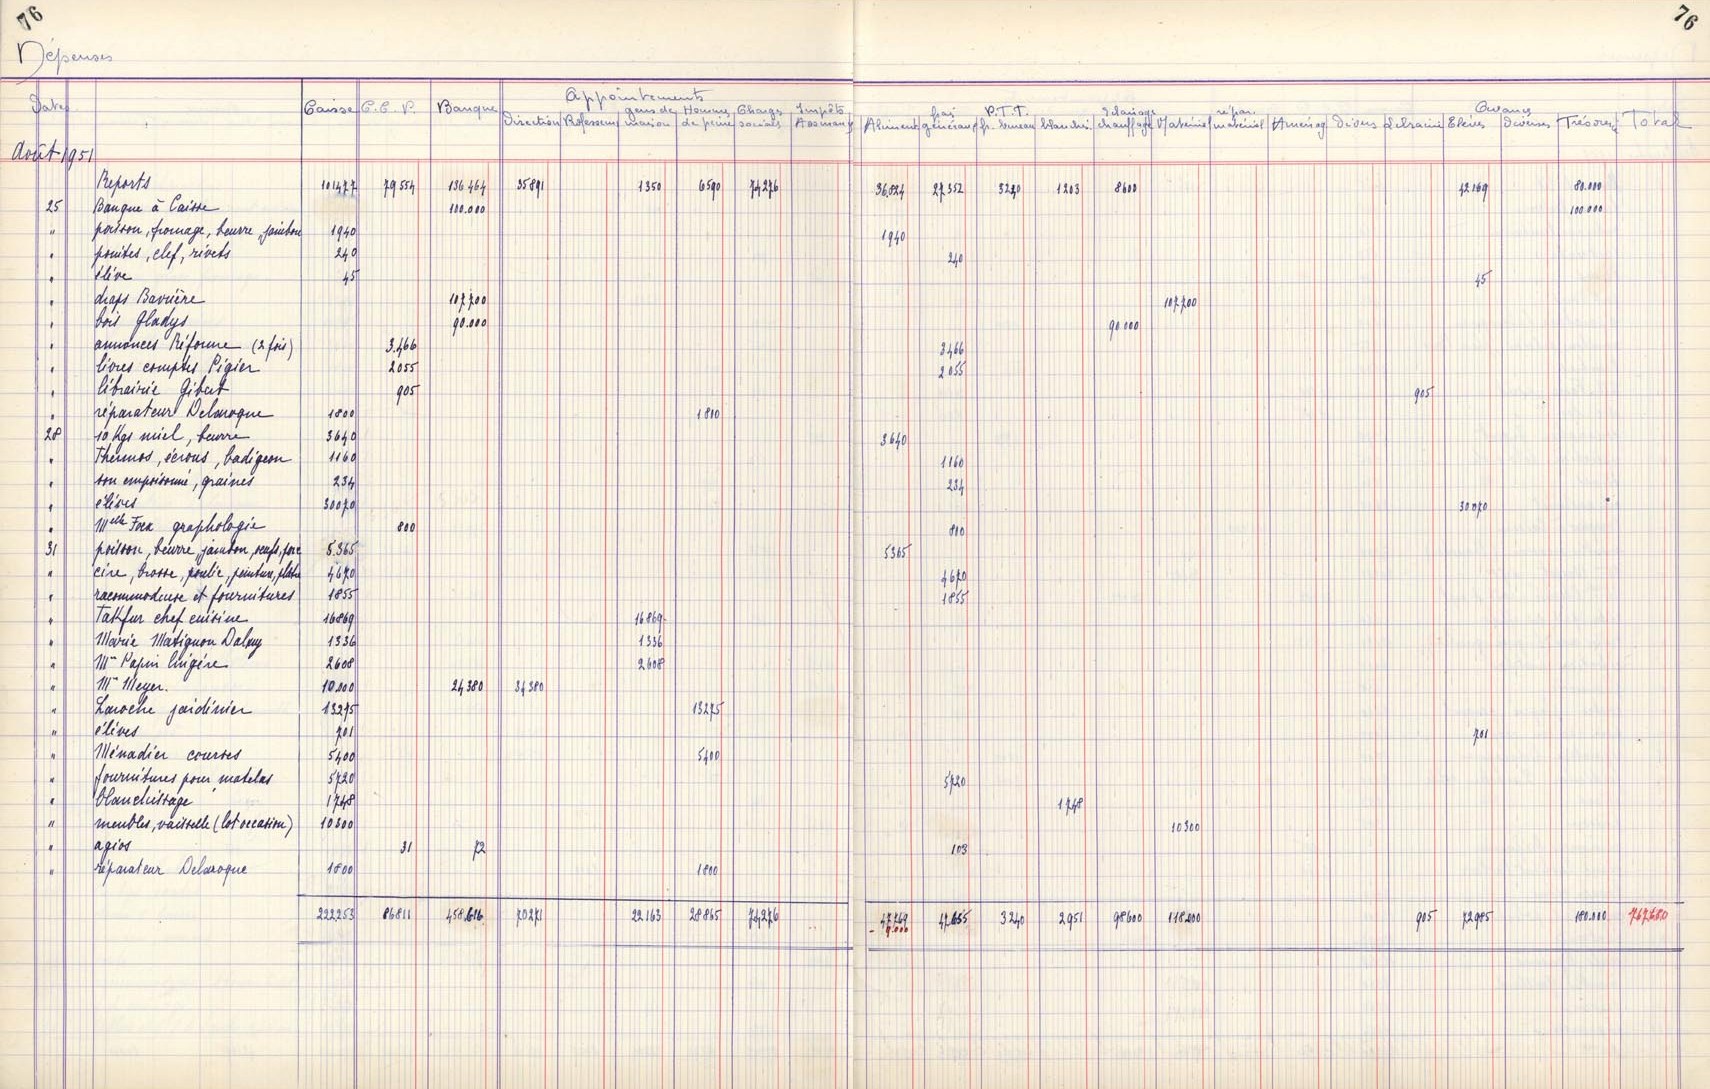 76 76
Dépenses
Appointements Avances
Dates Caisse C.C.P. Banque Direction Professeurs gens de maison Homme de peine Charges sociales Impôts Assurances Aliment. frais généraux P.T.T. fr. bureau blanchis. éclairage chauffage Matériel répar. matériel Aménag. divers Librairie Elèves diverses Trésorerie Total
Août 1951
Reports 101477 79554 136464 35891 1350 6590 74276 36.824 27352 3240 1203 8600 42169 80.000
25 Banque à Caisse 100.000 100.000
" poisson, fromage, beurre, jambon 1940 1940
" pointes, clef, rivets 240 240
" élève 45 45
" draps Bavière 107700 107700
" bois Gladys 90.000 90.000
" annonces Réforme (2 fois) 3.466 3466
" livres comptes Pigier 2055 2055
" librairie Gibert 905 905
" réparateur Delaroque 1800 1800
28 10 Kgs miel, beurre 3640 3640
" Thermos, écrous, badigeon 1160 1160
" son empoisonné, graines 234 234
" élèves 30070 30070
" Melle graphologie 800 800
31 poisson, beurre, jambon, oeufs, porc 5.365 5365
" cire, brosse, poulie, peinture, plâtre 4670 4670
" racommodeuse et fournitures 1855 1855
" Takfur chef cuisine 16869 16869
" Marie Matignon 1336 1336
" Mme Papin lingère 2608 2608
" Mme Meyer. 10.000 24380 34380
" Laroche jardinier 13275 13275
" élèves 701 701
" Ménadier courses 5400 5400
" fournitures pour matelas 5720 5720
" blanchissage 1748 1748
" meubles, vaisselle (lot occasion) 10300 10300
" agios 31 72 103
" réparateur Delaroque 1800 1800
222253 86811 458.616 70271 22.163 28865 74276 47769 47.655 3240 2951 98600 118.000 905 72985 180.000 767680
- 9.000